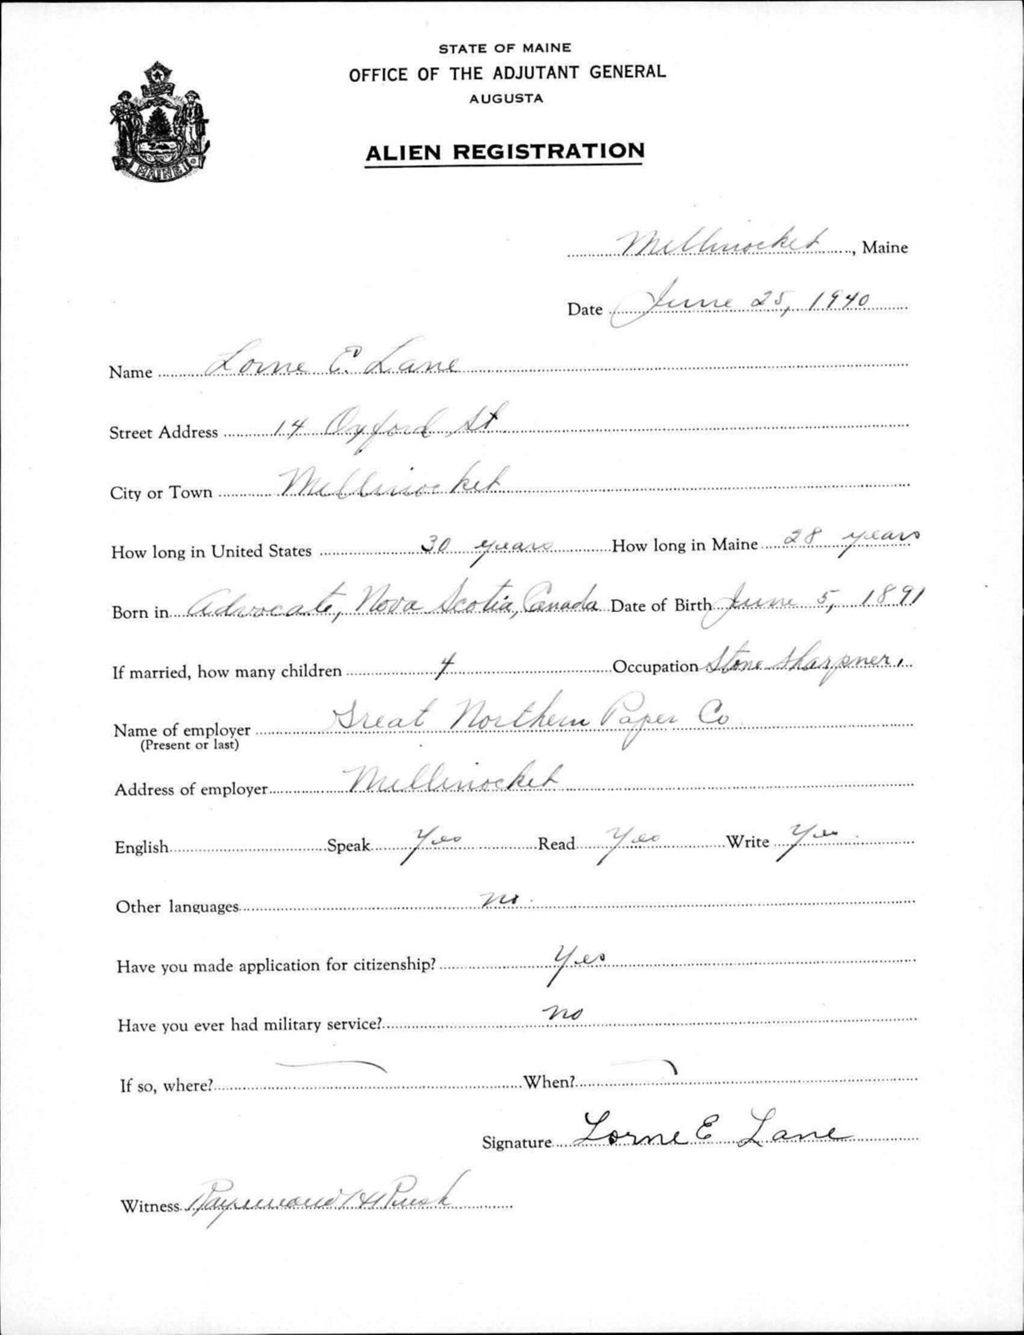 STATE OF MAINE
OFFICE OF THE ADJUTANT GENERAL
AUGUSTA
ALIEN REGISTRATION
MAINE
Millinocket, Maine
Date June 25, 1940
Name Lorne E. Lane
Street Address 14 Oxford St.
City or Town Millinocket
How long in United States 30 years How long in Maine 28 years
Born in Advocate, Nova Scotia, Canada Date of Birth June 5, 1891
If married, how many children 4 Occupation Stone Sharpner.
Name of employer Great Northern Paper Co
(Present or last)
Address of employer Millinocket
English Speak Yes Read Yes Write Yes.
Other languages no.
Have you made application for citizenship? Yes
Have you ever had military service? no
If so, where? When?
Signature Lorne E Lane
Witness Raymond H Rush